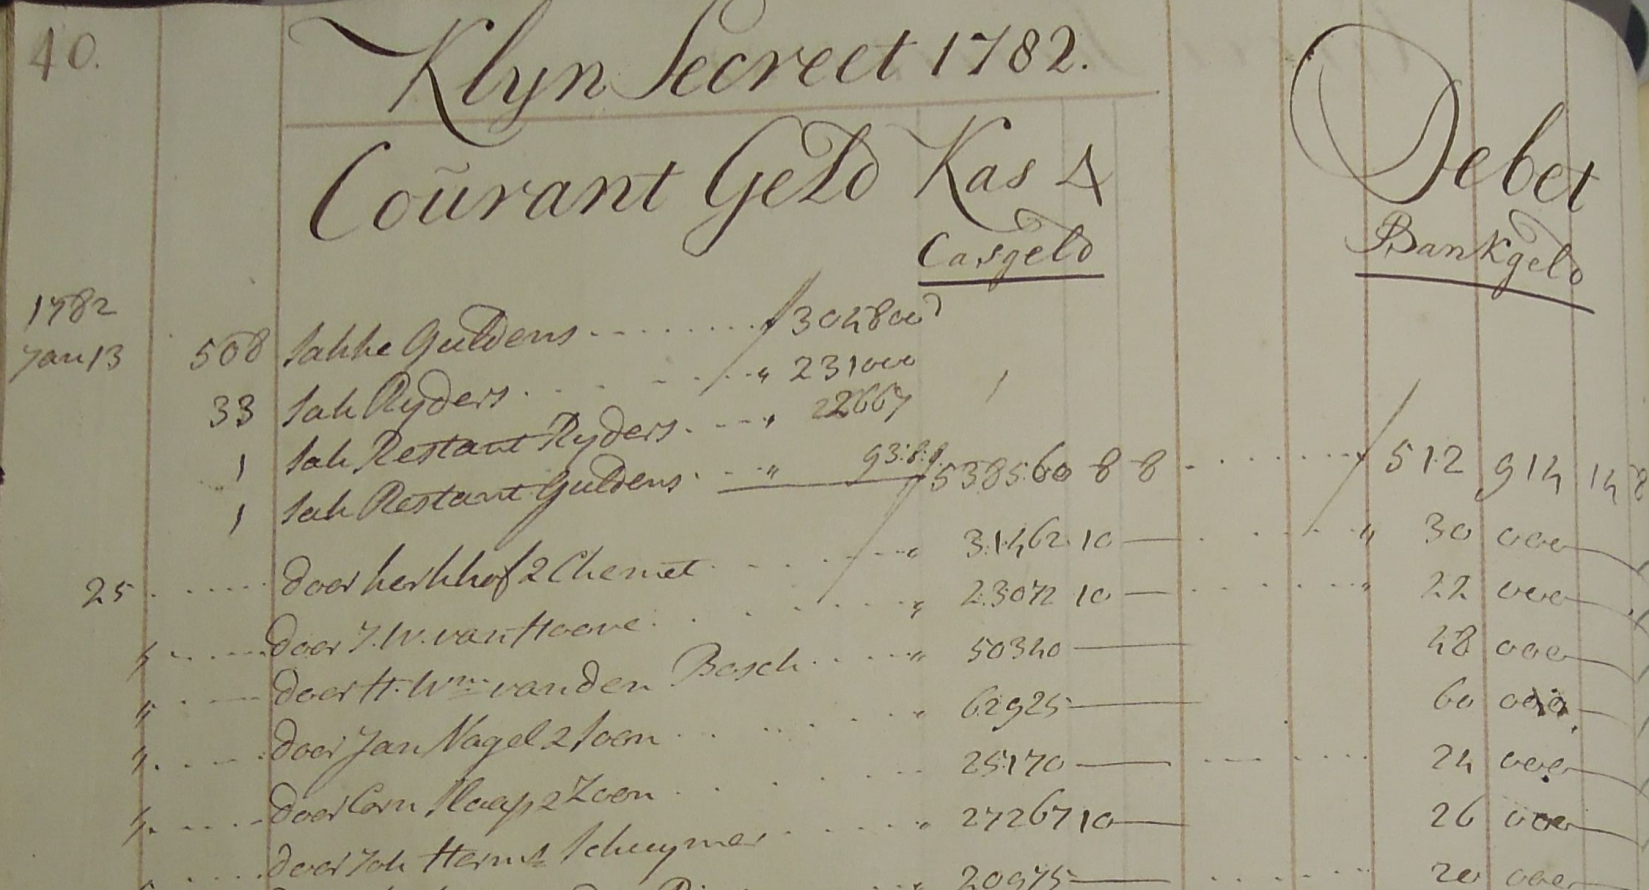 40.
Klyn Secreet 1782.
Courant Geld Kas Debet
Casgeld Bankgeld
1782
Jan 13 508 Sakke Guldens f 304800
33 Sak Ryders " 231000
1 Sak Restant Ryders " 22667
1 Sak Restant Guldens " 93:8:8 f 538560 8 8 f 512 914 14 8
25 door kerkhof & Chemet " 31462 10 — " 30 000 —
" door J. W. van Hoove " 23072 10 — " 22 000 —
" door H. Wm. van den Bosch " 50340 — 48 000 —
" door Jan Nagel & Soon " 62925 — 60 000 —
" door Corn Slaap & Zoon 25170 — 24 000 —
" door Joh Herms Scheymer " 27267 10 — 26 000 —
20975 — 20 000 —